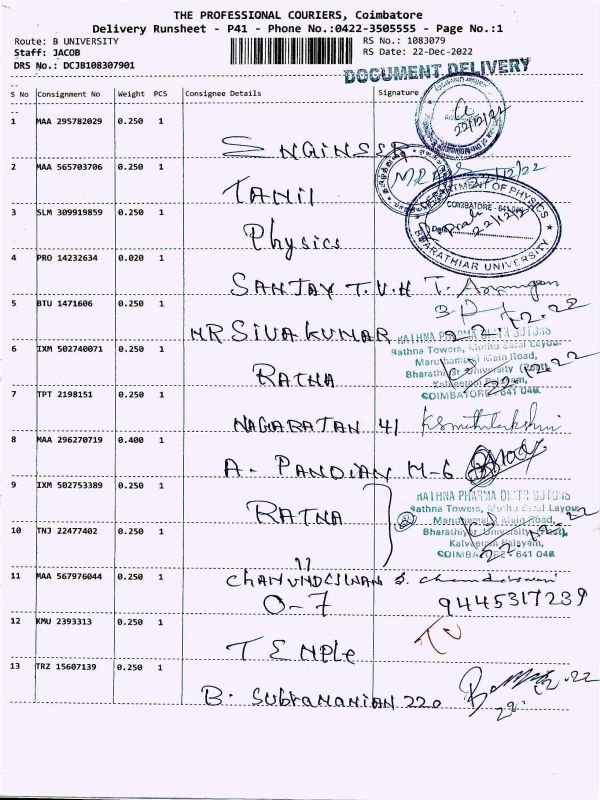 THE PROFESSIONAL COURIERS, Coimbatore
Delivery Runsheet - P41 - Phone No.:0422-3505555 - Page No.:1
Route: B UNIVERSITY RS No.: 1083079
Staff: JACOB RS Date: 22-Dec-2022
DRS No.: DCJB108307901
DOCUMENT DELIVERY
S No Consignment No Weight PCS Consignee Details Signature
1 MAA 295782029 0.250 1
22/12/22
2 MAA 565703706 0.250 1
TAMIL
22/12/22
DEPARTMENT OF PHYSICS
COIMBATORE - 641 046
BHARATHIAR UNIVERSITY
3 SLM 309919859 0.250 1
Physics
4 PRO 14232634 0.020 1
SANJAY T.V.H
5 BTU 1471606 0.250 1
MR SIVA KUMAR
6 IXM 502740071 0.250 1
RATNA
RATHNA PHARMA DISTRIBUTORS
Rathna Towers, Muthu Layout
Maruthamalai Main Road,
Bharathiyar University (Post),
Kalveeram Palayam,
COIMBATORE - 641 046
7 TPT 2198151 0.250 1
NAGARATAN 41
8 MAA 296270719 0.400 1
A. PANDIAN M-6
9 IXM 502753389 0.250 1
RATNA
RATHNA PHARMA DISTRIBUTORS
Rathna Towers, Muthu Layout
Maruthamalai Main Road,
Bharathiyar University (Post),
Kalveeram Palayam,
COIMBATORE - 641 046
10 TNJ 22477402 0.250 1
11
11 MAA 567976044 0.250 1
O-7 9445317239
12 KMU 2393313 0.250 1
TEMPLe
13 TRZ 15607139 0.250 1
B. SUBRAMANIAN 220